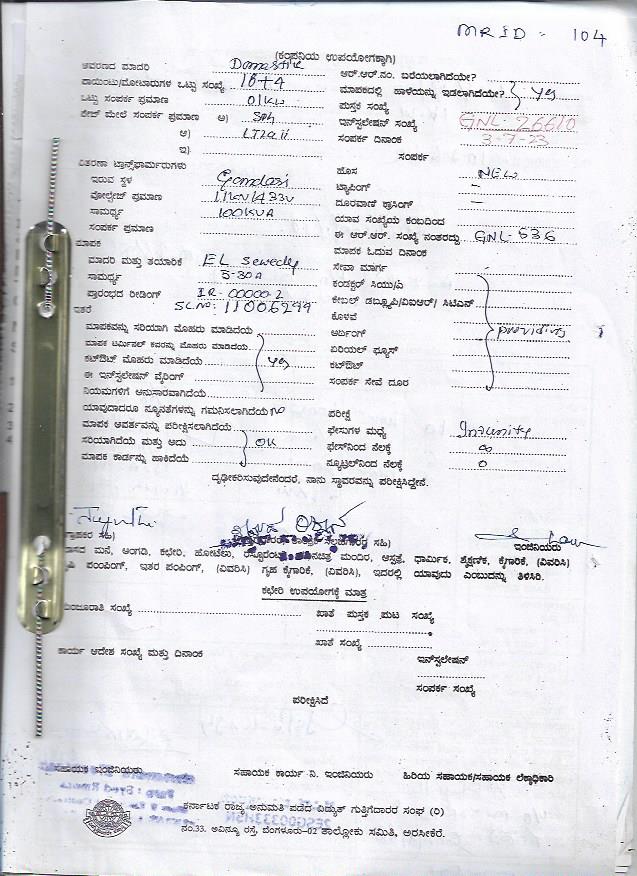 MRID - 104
(ಕಂಪನಿಯ ಉಪಯೋಗಕ್ಕಾಗಿ)
ಆವರಣದ ಮಾದರಿ Domestic
ಪಾಯಿಂಟು/ಮೋಟಾರುಗಳ ಒಟ್ಟು ಸಂಖ್ಯೆ 16+4
ಒಟ್ಟು ಸಂಪರ್ಕ ಪ್ರಮಾಣ 01KW
ಫೇಜ್ ಮೇಲೆ ಸಂಪರ್ಕ ಪ್ರಮಾಣ ಅ)
ಆ) LT2a ii
ಇ)
ವಿತರಣಾ ಟ್ರಾನ್ಸ್‌ಫಾರ್ಮರುಗಳು
ಇರುವ ಸ್ಥಳ Gandasi
ವೋಲ್ಟೇಜ್ ಪ್ರಮಾಣ 11KV/433V
ಸಾಮರ್ಥ್ಯ 100KVA
ಸಂಪರ್ಕ ಪ್ರಮಾಣ
ಮಾಪಕ
ಮಾದರಿ ಮತ್ತು ತಯಾರಿಕೆ EL Sewedy
ಸಾಮರ್ಥ್ಯ 5-30A
ಪ್ರಾರಂಭದ ರೀಡಿಂಗ್ IR-00000-2
ಇತರೆ SL NO: 11006299
ಮಾಪಕವನ್ನು ಸರಿಯಾಗಿ ಮೊಹರು ಮಾಡಿದೆಯೆ
ಮಾಪಕ ಟರ್ಮಿನಲ್ ಕವರನ್ನು ಮೊಹರು ಮಾಡಿದೆಯೆ
ಕಟ್ಔಟ್ ಮೊಹರು ಮಾಡಿದೆಯೆ yes
ಈ ಇನ್‌ಸ್ಟಲೇಷನ್ ವೈರಿಂಗ್
ನಿಯಮಗಳಿಗೆ ಅನುಸಾರವಾಗಿದೆಯೆ
ಯಾವುದಾದರೂ ನ್ಯೂನತೆಗಳನ್ನು ಗಮನಿಸಲಾಗಿದೆಯೆ NO
ಮಾಪಕ ಆವರ್ತವನ್ನು ಪರೀಕ್ಷಿಸಲಾಗಿದೆಯೆ
ಸರಿಯಾಗಿದೆಯೆ ಮತ್ತು ಅದು OK
ಮಾಪಕ ಕಾರ್ಡನ್ನು ಹಾಕಿದೆಯೆ
ಆರ್.ಆರ್.ನಂ. ಬರೆಯಲಾಗಿದೆಯೇ?
ಮಾಪಕದಲ್ಲಿ ಹಾಳೆಯನ್ನು ಇಡಲಾಗಿದೆಯೇ? yes
ಪುಸ್ತಕ ಸಂಖ್ಯೆ
ಇನ್‌ಸ್ಟಲೇಷನ್ ಸಂಖ್ಯೆ GNL-26610
ಸಂಪರ್ಕ ದಿನಾಂಕ 3-7-23
ಸಂಪರ್ಕ
ಹೊಸ NEW
ಟ್ಯಾಪಿಂಗ್ -
ದೂರವಾಣಿ ಕ್ರಾಸಿಂಗ್ -
ಯಾವ ಸಂಖ್ಯೆಯ ಕಂಬದಿಂದ
ಈ ಆರ್.ಆರ್. ಸಂಖ್ಯೆ ನಂತರದ್ದು GNL-636
ಮಾಪಕ ಓದುವ ದಿನಾಂಕ
ಸೇವಾ ಮಾರ್ಗ
ಕಂಡಕ್ಟರ್ ಸಿಯು/ಎ
ಕೇಬಲ್ ಡಬ್ಲ್ಯೂಪಿ/ವಿಐಆರ್/ ಸಿಟಿಎಸ್
ಕೊಳವೆ
ಅರ್ತಿಂಗ್ providing
ಏರಿಯಲ್ ಫ್ಯೂಸ್
ಕಟ್ಔಟ್
ಸಂಪರ್ಕ ಸೇವೆ ದೂರ
ಪರೀಕ್ಷೆ
ಫೇಸುಗಳ ಮಧ್ಯೆ Infinity
ಫೇಸ್‌ನಿಂದ ನೆಲಕ್ಕೆ ∞
ನ್ಯೂಟ್ರಲ್‌ನಿಂದ ನೆಲಕ್ಕೆ 0
ದೃಢೀಕರಿಸುವುದೇನೆಂದರೆ, ನಾನು ಸ್ಥಾವರವನ್ನು ಪರೀಕ್ಷಿಸಿದ್ದೇನೆ.
ಗ್ರಾಹಕರ ಸಹಿ) ಇಂಜಿನಿಯರು
ಮನೆ, ಅಂಗಡಿ, ಕಛೇರಿ, ಹೋಟೆಲು, ಮಂದಿರ, ಆಸ್ಪತ್ರೆ, ಧಾರ್ಮಿಕ, ಶೈಕ್ಷಣಿಕ, ಕೈಗಾರಿಕೆ, (ವಿವರಿಸಿ)
ಪಂಪಿಂಗ್, ಇತರ ಪಂಪಿಂಗ್, (ವಿವರಿಸಿ) ಗೃಹ ಕೈಗಾರಿಕೆ, (ವಿವರಿಸಿ), ಇದರಲ್ಲಿ ಯಾವುದು ಎಂಬುದನ್ನು ತಿಳಿಸಿರಿ.
ಕಛೇರಿ ಉಪಯೋಗಕ್ಕೆ ಮಾತ್ರ
ಮಂಜೂರಾತಿ ಸಂಖ್ಯೆ ಖಾತೆ ಪುಸ್ತಕ ಪುಟ ಸಂಖ್ಯೆ
ಖಾತೆ ಸಂಖ್ಯೆ
ಕಾರ್ಯ ಆದೇಶ ಸಂಖ್ಯೆ ಮತ್ತು ದಿನಾಂಕ ಇನ್‌ಸ್ಟಲೇಷನ್
ಸಂಪರ್ಕ ಸಂಖ್ಯೆ
ಪರೀಕ್ಷಿಸಿದೆ
ಸಹಾಯಕ ಇಂಜಿನಿಯರು ಸಹಾಯಕ ಕಾರ್ಯ ನಿ. ಇಂಜಿನಿಯರು ಹಿರಿಯ ಸಹಾಯಕ/ಸಹಾಯಕ ಲೆಕ್ಕಾಧಿಕಾರಿ
ಕರ್ನಾಟಕ ರಾಜ್ಯ ಅನುಮತಿ ಪಡೆದ ವಿದ್ಯುತ್ ಗುತ್ತಿಗೆದಾರರ ಸಂಘ (ರಿ)
ನಂ.33. ಅವಿನ್ಯೂ ರಸ್ತೆ, ಬೆಂಗಳೂರು-02 ತಾಲ್ಲೋಕು ಸಮಿತಿ, ಅರಸೀಕೆರೆ.